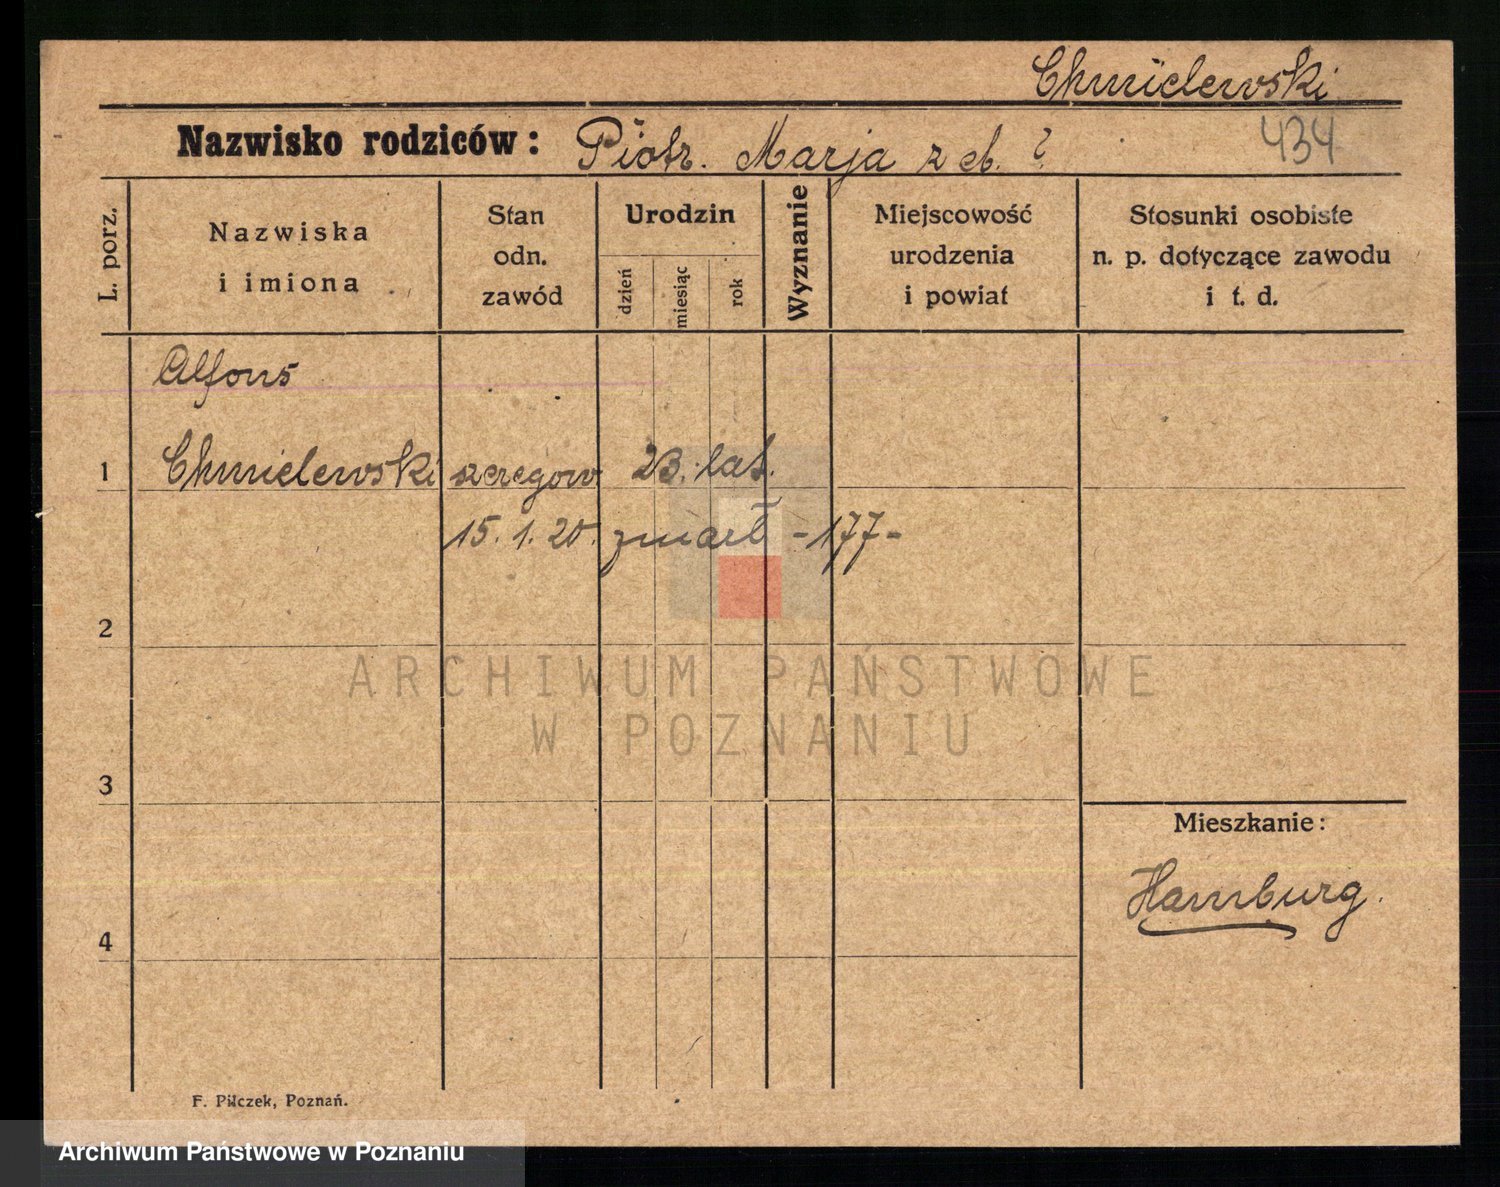 Chmielewski
Nazwisko rodziców: Piotr. Marja z d. ?
434
L. porz.
Nazwiska
i imiona
Stan
odn.
zawód
Urodzin
dzień
miesiąc
rok
Wyznanie
Miejscowość
urodzenia
i powiat
Stosunki osobiste
n. p. dotyczące zawodu
i t. d.
Alfons
1 Chmielewski szeregow. 23. lat.
15. 1. 20. zmarł -177-
2
ARCHIWUM PAŃSTWOWE
W POZNANIU
3
Mieszkanie:
Hamburg.
4
F. Pilczek, Poznań.
Archiwum Państwowe w Poznaniu